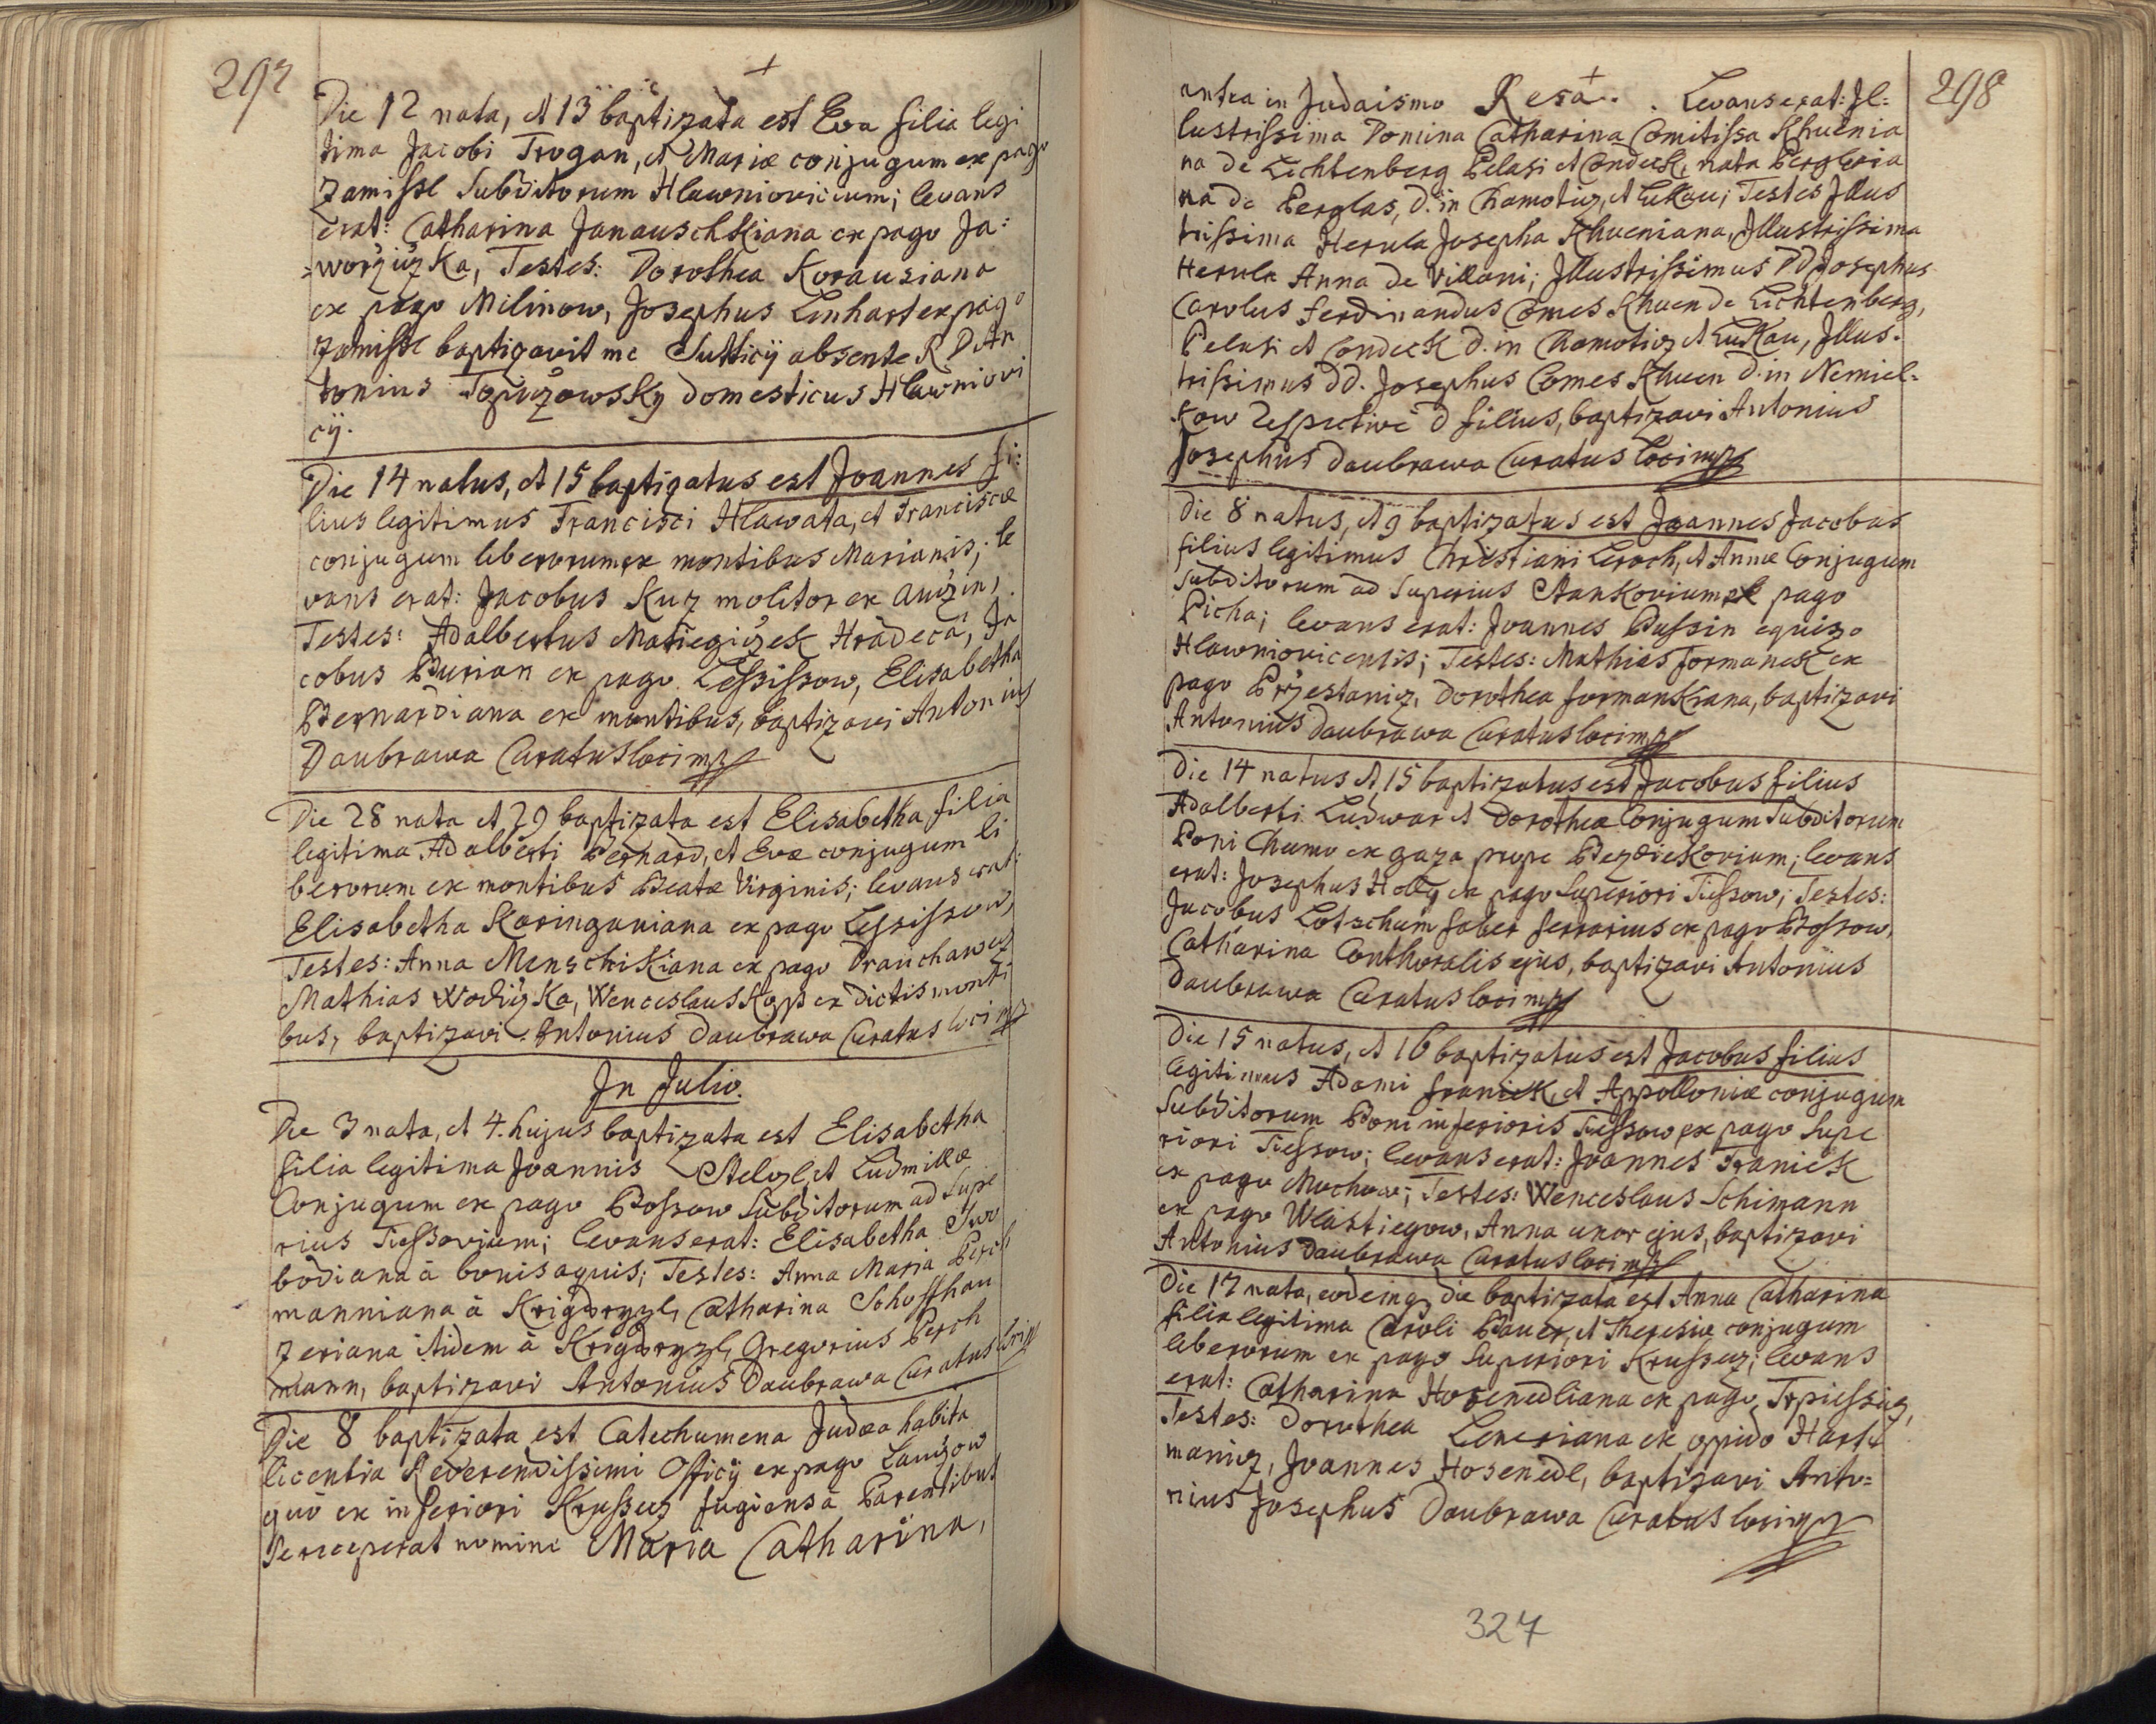 297
+
Die 12 nata, et 13 baptizata est Eva filia legi
tima Jacobi Trogan, et Mariæ conjugum ex pago
Zamissl Subditorum Hlawniovicium; levans
erat: Catharina Janauschkiana ex pago Ja:
worziczka, Testes: Dorothea Korausiana
ex pago Milinow, Josephus Linhart ex pago
Zamissl baptizavit me Sutticij absente R D An
tonius domesticus Hlawniovi
cij.
Die 14 natus, et 15 baptizatus est Joannes fi:
lius legitimus Francisci Hlawata, et Franciscæ
conjugum liberorum ex montibus Marianis; le
vans erat: Jacobus Kuz molitor ex
Testes: Adalbertus Matiegiczek Hradeca, Ja
cobus Burian ex pago Lessissow, Elisabetha
Bernardiana ex montibus, baptizavi Antonius
Daubrawa Curatus loci mp
Die 28 nata et 29 baptizata est Elisabetha filia
legitima Adalberti Bernard, et Evæ conjugum li
berorum ex montibus Beatæ Virginis; levans erat:
Elisabetha Karinganiana ex pago Lessissow,
Testes: Anna Menschikiana ex pago
Mathias Wodiczka, Wenceslaus Kopp ex dictis monti
bus, baptizavi Antonius Daubrawa Curatus loci mp
In Julio.
Die 3 nata, et 4. hujus baptizata est Elisabetha
filia legitima Joannis Stelzl, et Ludmillæ
Conjugum ex pago Bossow Subditorum ad Supe
rius Tiessovium; levans erat: Elisabetha Swo
bodiana à bonis aquis; Testes: Anna Maria Perch
manniana à Catharina Schoffhau
zeriana itidem à Gregorius Perch
mann, baptizavi Antonius Daubrawa Curatus loci mp
Die 8 baptizata est Catechumena Judæa habita
licentia Reverendissimi Officij ex pago Lauczow
quò ex inferiori Krussecz fugiens à Parentibus
Se receperat nomine Maria Catharina,
298
+
antea in Judaismo Resa. . Levans erat: Il:
lustrissima Domina Catharina Comitissa Khuenia
na de Lichtenberg Belasi et Condeck, nata Pergleria
na de Perglas, d. in Chamotiz, et Lukau; Testes Illus
trissima Herula Josepha Khueniana, Illustrissima
Herula Anna de Villani; Illustrissimus DD Josephus
Carolus Ferdinandus Comes Khuen de Lichtenberg,
Belasi et Condeck d. in Chamotiz et Lukau, Illus.
trissimus dd. Josephus Comes Khuen d. in Nemiel=
kow respective d filius, baptizavi Antonius
Josephus Daubrawa Curatus Loci mp
Die 8 natus, et 9 baptizatus est Joannes Jacobus
filius legitimus Christiani Leroch, et Annæ Conjugum
Subditorum ad Superius Stankovium ex pago
Picha; levans erat: Joannes Bussin equiso
Hlawniovicensis; Testes: Mathias Formanek ex
pago Przestaniz, Dorothea Formankiana, baptizavi
Antonius Daubrawa Curatus loci mp
Die 14 natus et 15 baptizatus est Jacobus filius
Adalberti Ludwar et Dorothea Conjugum Subditorum
Boni Chumo ex gaza prope Bezdiekovium; levans
erat: Josephus Holly ex pago Superiori Tiessow; Testes:
Jacobus Lotscham faber ferrarius ex pago Bossow,
Catharina Conthoralis ejus, baptizavi Antonius
Daubrawa Curatus loci mp
Die 15 natus, et 16 baptizatus est Jacobus filius
legitimus Adami Franiek, et Appolloniæ conjugum
Subditorum Boni inferioris Tiessow ex pago Supe
riori Tiessow; levans erat: Joannes Franiek
ex pago Mochow; Testes: Wenceslaus Schimann
ex pago Wlastiegow, Anna uxor ejus, baptizavi
Antonius Daubrawa Curatus loci mp
Die 17 nata, eodemq; die baptizata est Anna Catharina
filia legitima Caroli Bauer, et Theresiæ conjugum
liberorum ex pago Superiori Krussecz; levans
erat: Catharina Hosenedliana ex pago Trpiessiz,
Testes: Dorothea Leneriana ex oppido Hart
maniz, Joannes Hosenedl, baptizavi Anto=
nius Josephus Daubrawa Curatus loci mp
327